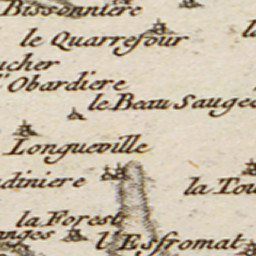 Bissonniere
le Quarrefour
ucher
Obardiere
le Beau Sauge
Longueville
diniere
la Tou
la Forest
nges
l'Esfromat